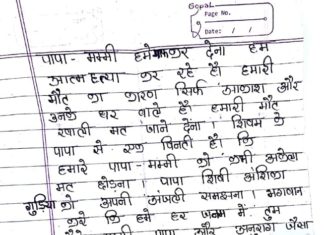 Gopal
Page No.
Date: / /
पापा - मम्मी हमे माफ कर देना हम
आत्म हत्या कर रहे है हमारी
मौत का कारण सिर्फ आकाश और
उनके घर वाले है हमारी मौत
खाली मत जाने देना। शिवम के
पापा से एक विनती है कि
हमारे पापा - मम्मी को कभी अकेला
मत छोड़ना। पापा शिवी अंशिका
गुड़िया को अपनी समझना। भगवान
करे कि हमे हर जनम में तुम
पापा और अनुराग जैसा